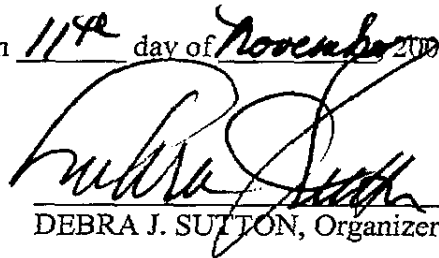 n 11th day of November 200
Debra J Sutton
DEBRA J. SUTTON, Organizer